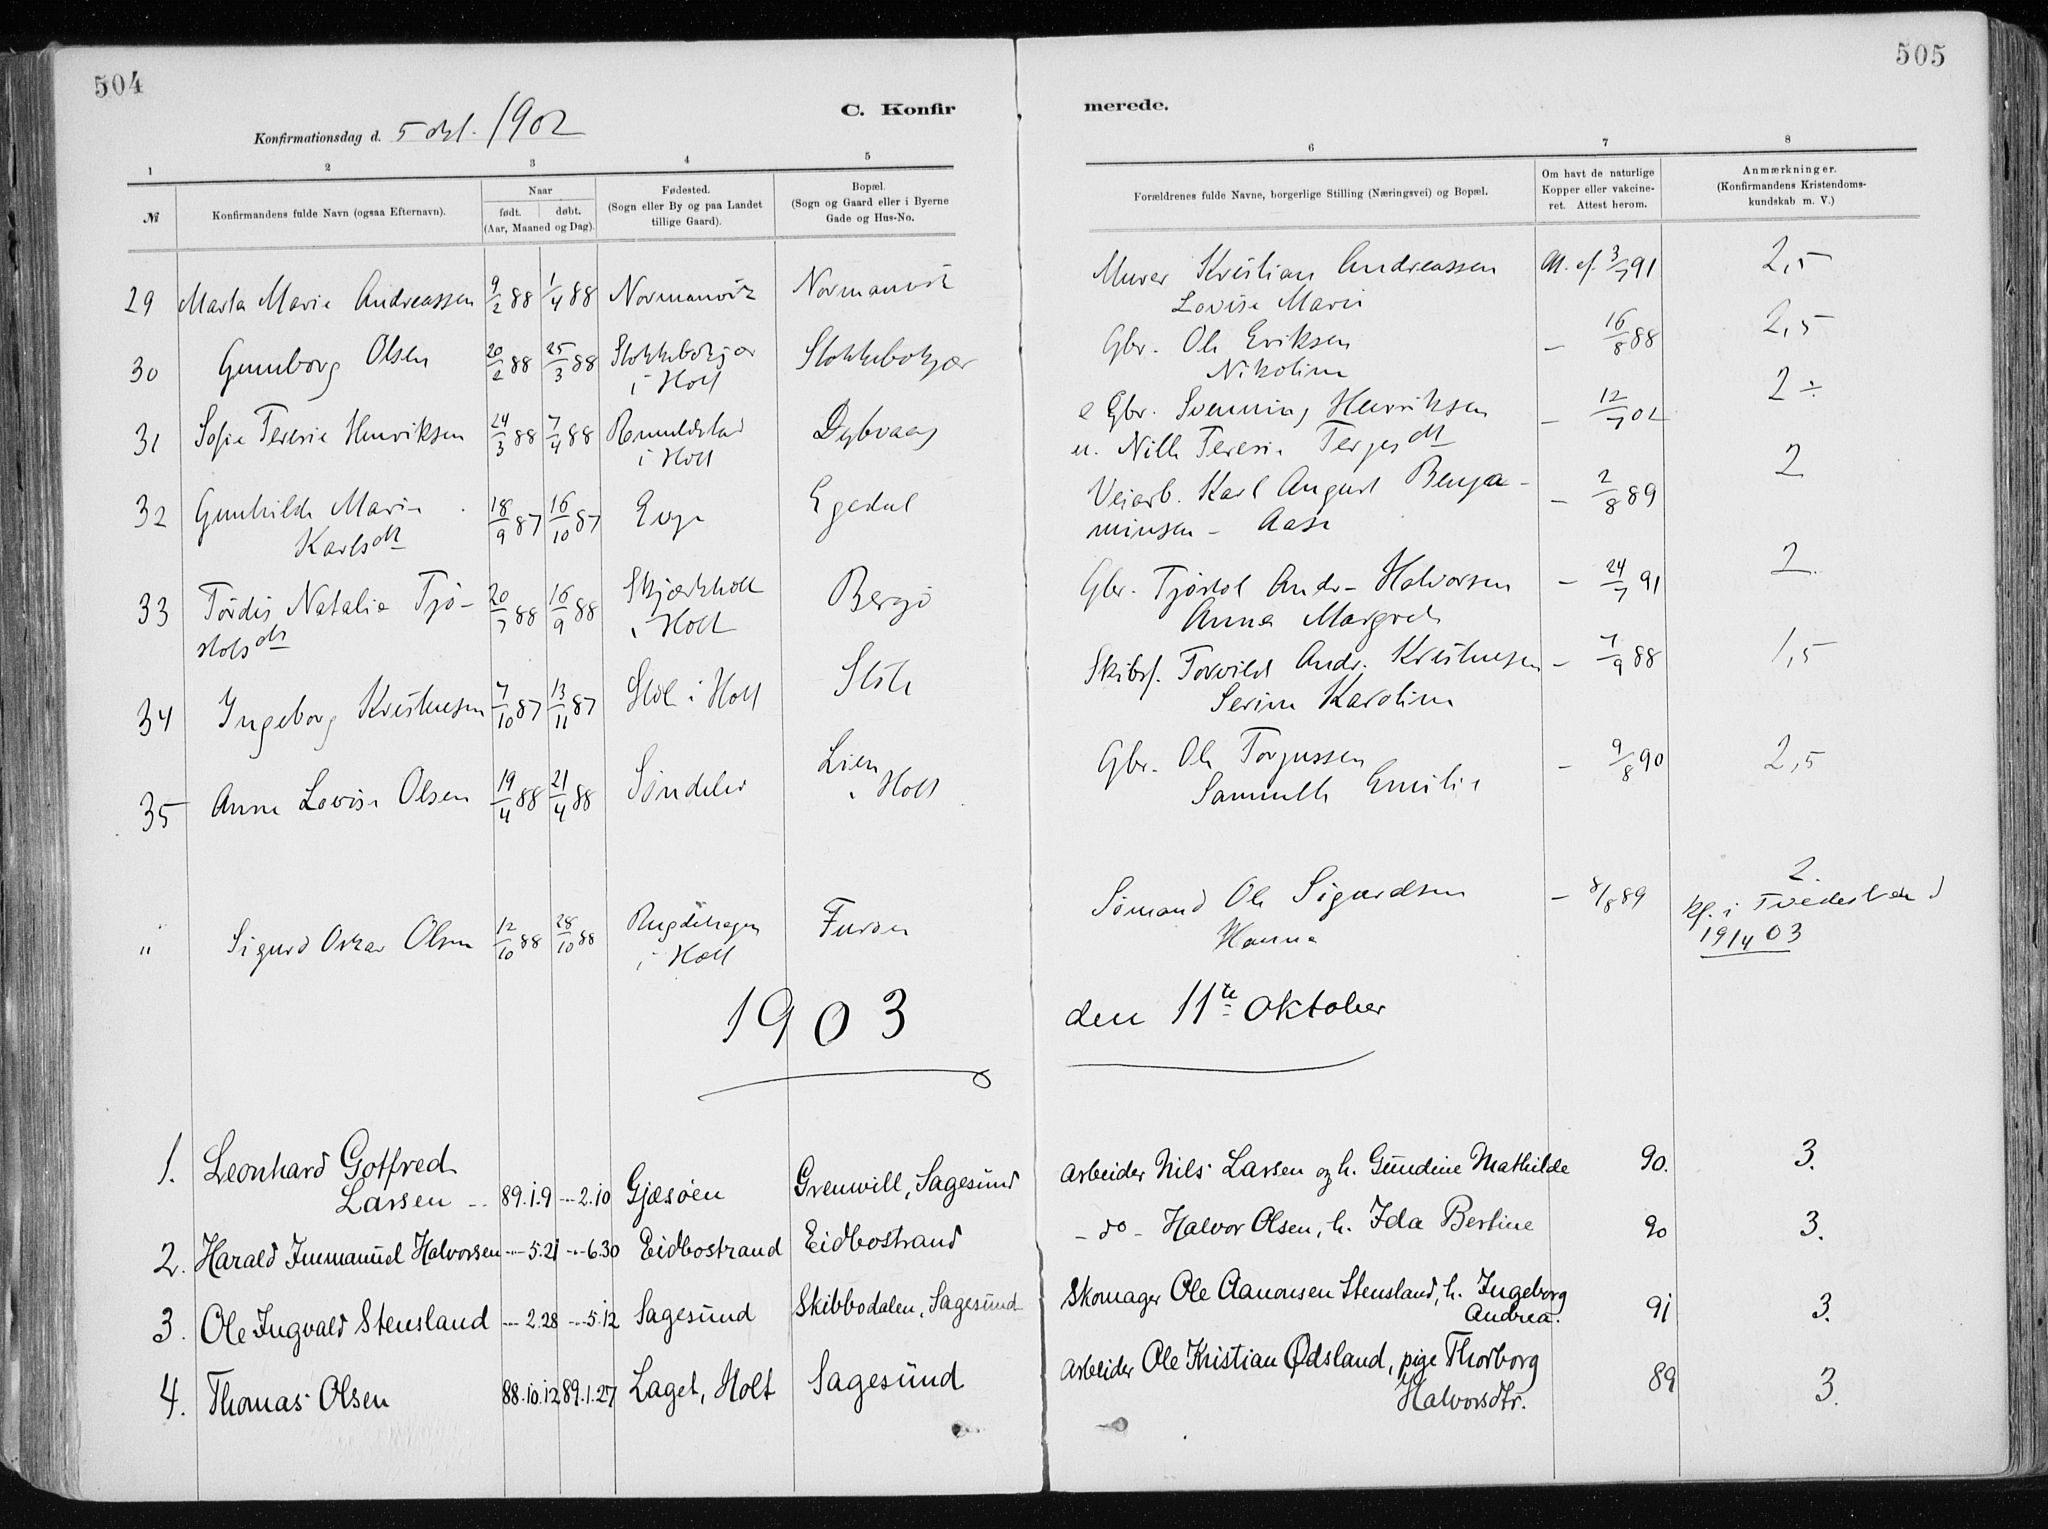 504
505
C. Konfirmerede.
Konfirmationsdag d. 5 okt. 1902
1 2 3 4 5 6 7 8
№
Konfirmandens fulde Navn (ogsaa Efternavn).
Naar
født. døbt.
(Aar, Maaned og Dag).
Fødested.
(Sogn eller By og paa Landet
tillige Gaard).
Bopæl.
(Sogn og Gaard eller i Byerne
Gade og Hus-No.
Forældrenes fulde Navne, borgerlige Stilling (Næringsvei) og Bopæl.
Om havt de naturlige
Kopper eller vakcine-
ret. Attest herom.
Anmærkninger.
(Konfirmandens Kristendoms-
kundskab m. V.)
29 Marta Marie Andreassen 9/2 88 1/4 88 Normanvik Normanvik Murer Kristian Andreassen 3/7 91 2,5
Lovise Marie
30 Gunborg Olsen 20/2 88 25/3 88 Stokkebokjær Stokkebokjær Gbr. Ole Eriksen – 16/8 88 2,5
i Holt Nikoline
31 Sofie Teresie Henriksen 24/3 88 7/4 88 Romundstad Dybvaag e Gbr. Svenning Henriksen – 12/7 02 2 ÷
i Holt u. Nille Teresie Terjesdt
32 Gunhilde Marie 18/9 87 16/10 87 Evje Egedal Veiarb. Karl August Benja- – 2/8 89 2
Karlsdt minsen – Aase
33 Tordis Natalie Tjø- 20/7 88 16/9 88 Skjærkholt Bergø Gbr. Tjøstol Andr- Halvorsen – 24/7 91 2.
stolsdt i Holt Anna Margrete
34 Ingeborg Kristensen 7/10 87 13/11 87 Støl i Holt Støle Skibsf. Torvild Andr. Kristensen – 7/9 88 1,5
Serine Karoline
35 Anne Lovise Olsen 19/4 88 21/4 88 Søndeled Lien Gbr. Ole Torjussen – 9/8 90 2,5
i Holt Samuelle Emilie
" Sigurd Oskar Olsen 12/10 88 28/10 88 Rugdehagen Furøen Sømand Ole Sigurdsen – 8/8 89 2.
i Holt Hanna Kf. i Tvedestrand
19/4 03
1903 den 11te Oktober
1. Leonhard Gotfred Arbeider Nils Larsen og h. Gundine Mathilde 90. 3.
Larsen – 89.1.9 –2.10 Gjæsøen Grenwill, Sagesund
2. Harald Immanuel Halvorsen –5.21 –6.30 Eidbostrand Eidbostrand – do – Halvor Olsen, h. Ida Bertine 90 3.
3. Ole Ingvald Stensland –2.28 –5.12 Sagesund Skibbodalen, Sagesund Skomager Ole Aanonsen Stensland, h. Ingeborg 91 3.
Andrea.
4. Thomas Olsen 88.10.12 89.1.27 Laget, Holt Sagesund Arbeider Ole Kristian Ødsland, pige Thorborg 89 3.
Halvorsdtr.